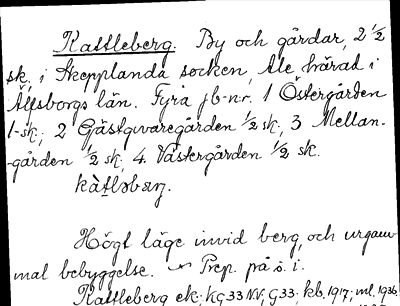 Kattleberg. By och gårdar, 2 1/2
sk. i Skepplanda socken, Ale härad i
Älfsborgs län. Fyra jb-nr. 1 Östergården
1 sk; 2 Gästgivaregården 1/2 sk, 3 Mellan-
-gården 1/2 sk; 4. Västergården 1/2 sk.
Högt läge invid berg, och urgam-
mal bebyggelse. Prep. på s. i.
Kattleberg ek; KG33 NV, G33; kb. 1917; ml. 1936